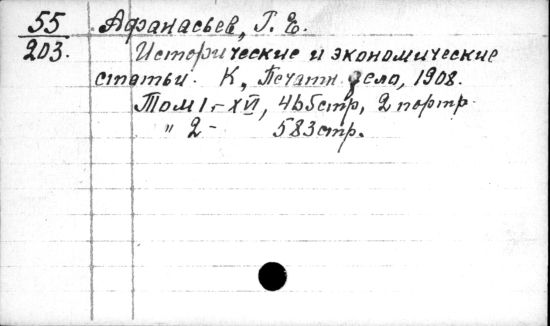 55 Афанасьев, Г. Е.
203. Исторические и экономические
статьи. К., Печатн. дело, 1908.
Том 1 - XVI, 465 стр, 2 портр.
" 2 - 583 стр.